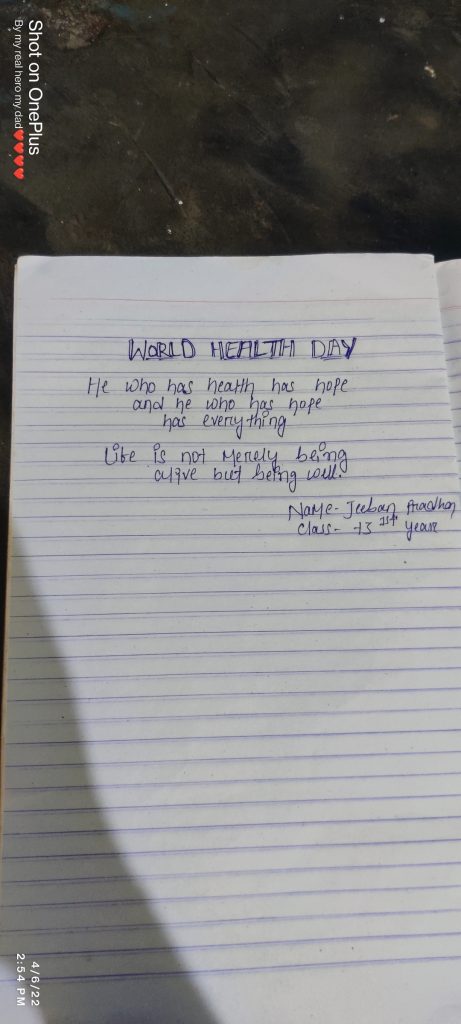 Shot on OnePlus
By my real hero my dad❤❤❤❤
WORLD HEALTH DAY
He who has health has hope
and he who has hope
has everything
Life is not Merely being
alive but being well.
Name- Jeeban Pradhan
Class- +3 1st year
4/6/22
2:54 PM